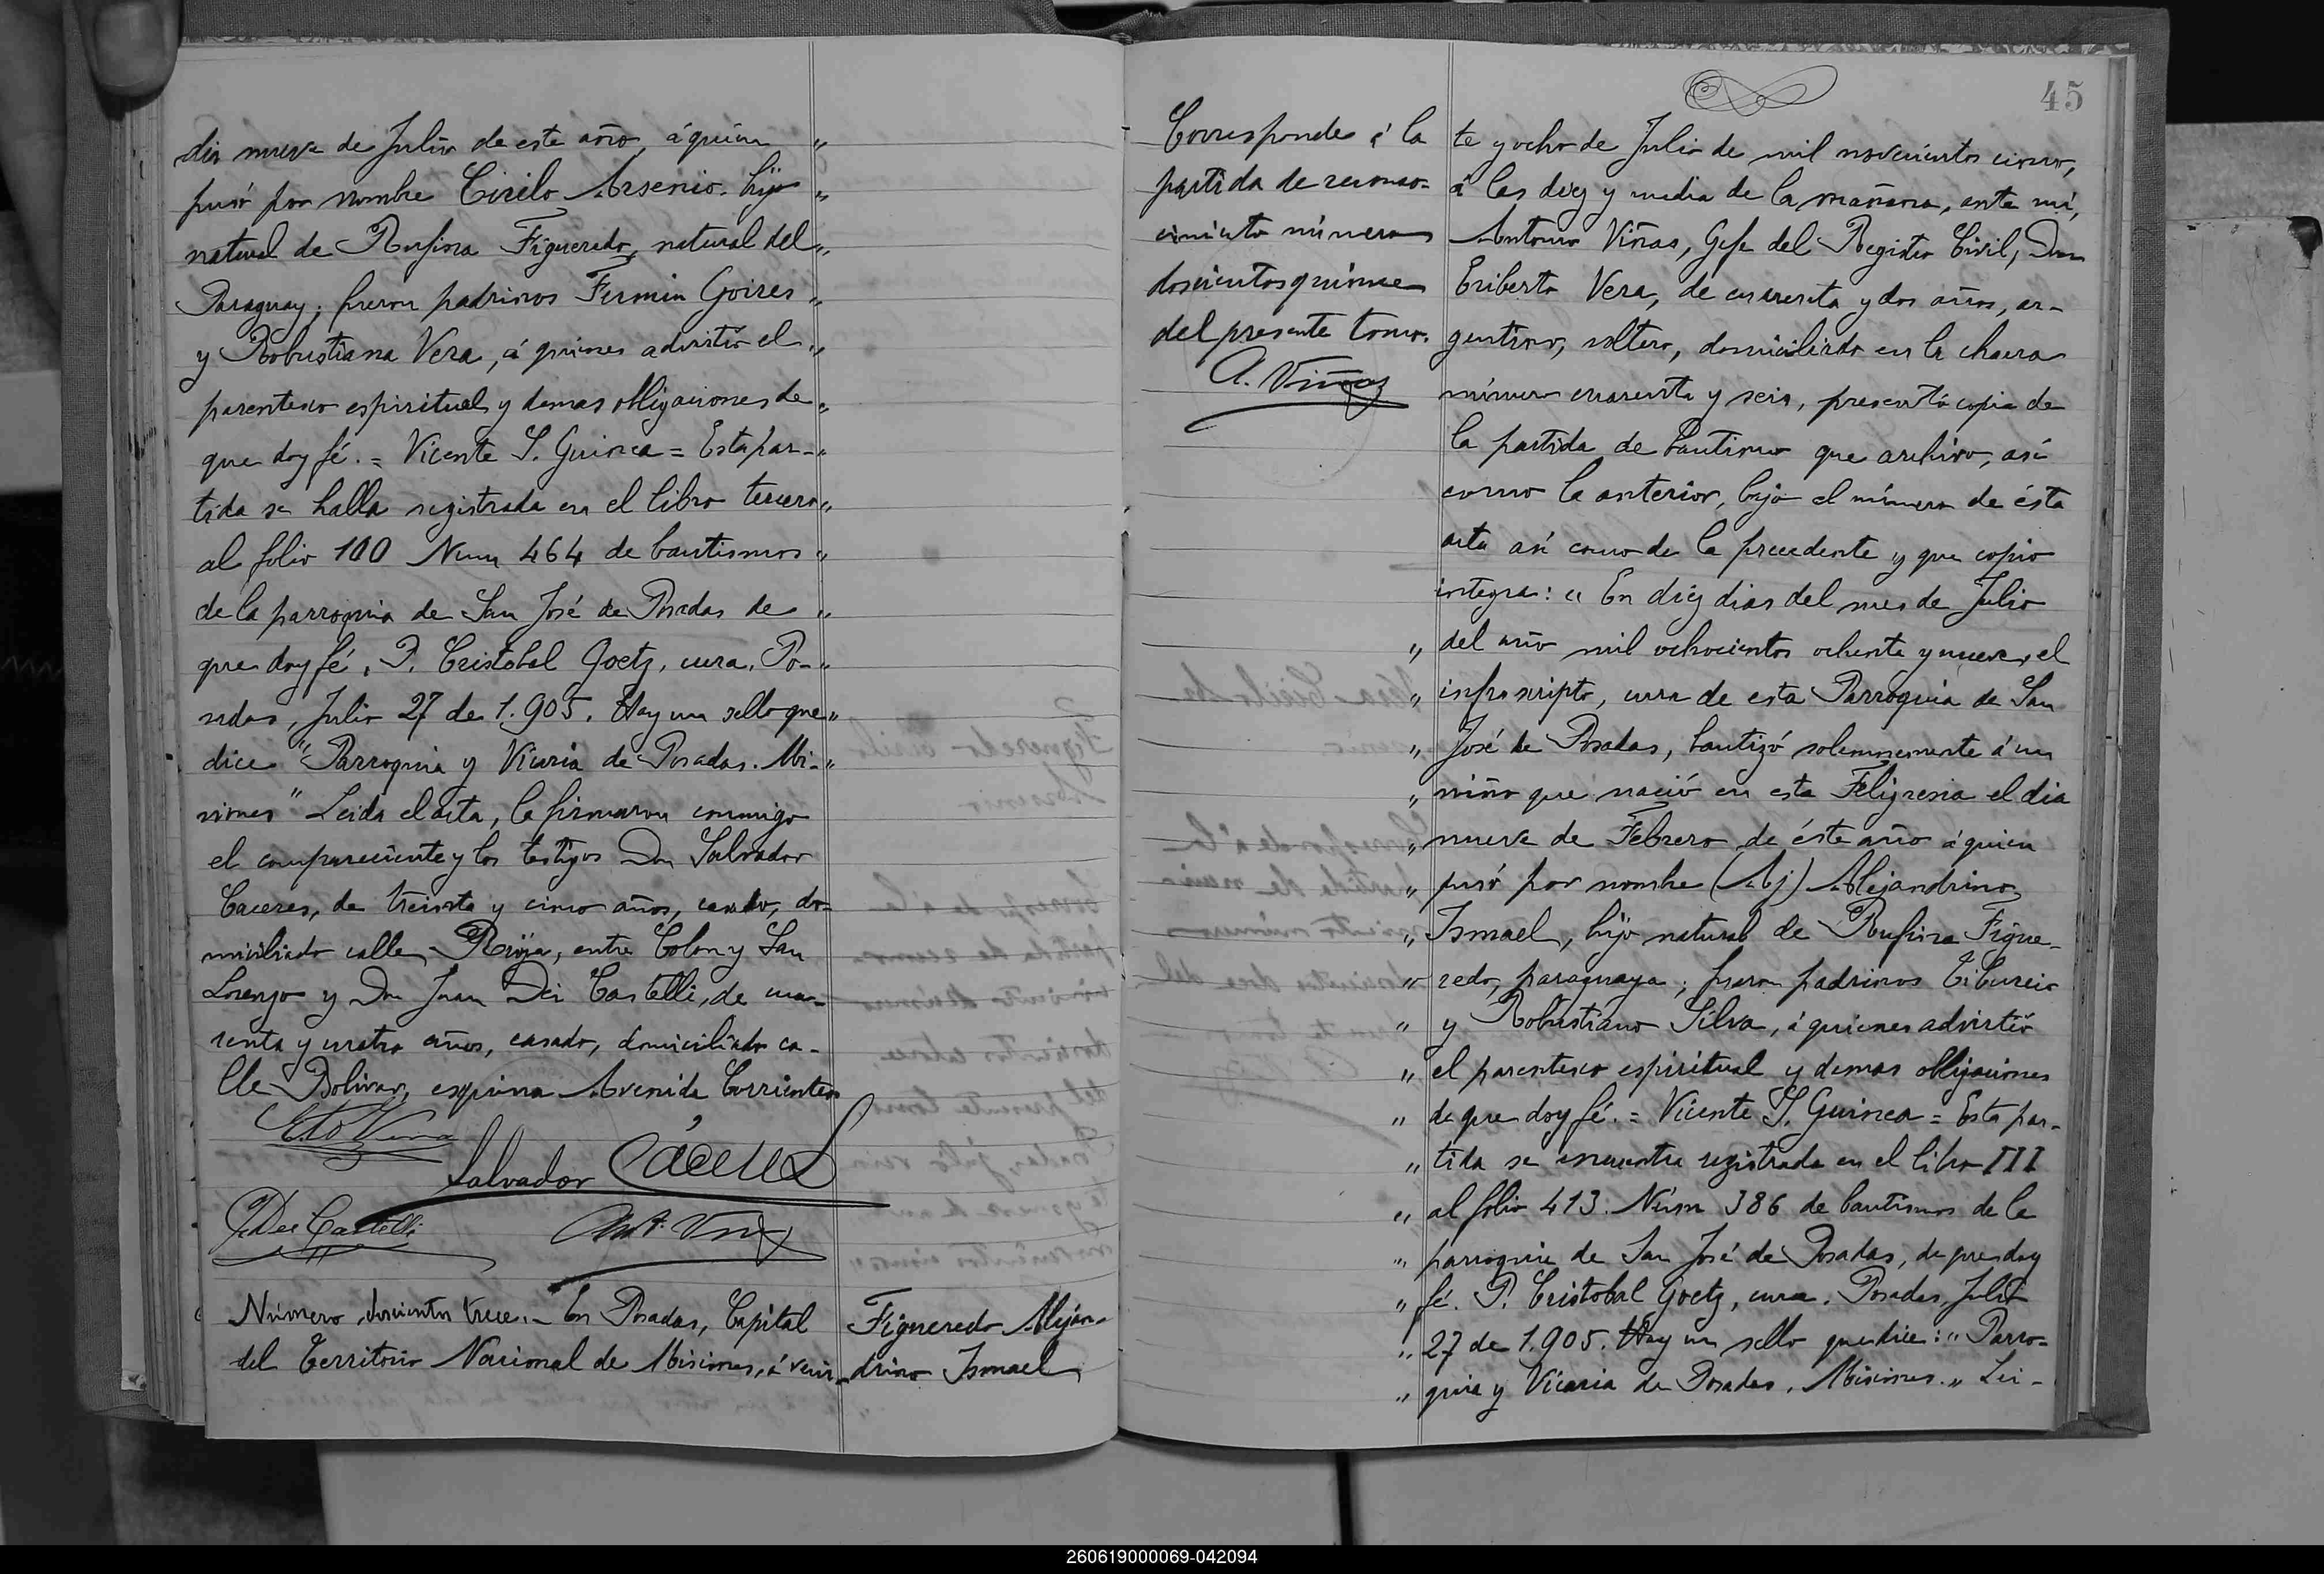 dia nueve de Julio de este año, á quien "
pusó por nombre Cirilo Arsenio. hijo "
natural de Rufina Figueredo, natural del "
Paraguay; fueron padrinos Fermin Goires "
y Robustiana Vera, á quienes advirtió el "
parentesco espiritual y demas obligaciones de "
que doy fé. = Vicente S. Guinea = Esta par- "
tida se halla registrada en el libro tercero "
al folio 100 Num 464 de bautismos "
de la parroquia de San José de Posadas de "
que doy fé. P. Cristobal Goetz, cura. Po- "
sadas, Julio 27 de 1.905. Hay un sello que "
dice "Parroquia y Vicaria de Posadas. Mi- "
siones" Leida el acta, la firmaron conmigo
el compareciente y los testigos Don Salvador
Caceres, de treinta y cinco años, casado, do-
miciliado calle Rioja, entre Colon y San
Lorenzo y Don Juan Dei Castelli, de cua-
renta y cuatro años, casado, domiciliado ca-
lle Bolivar, esquina Avenida Corrientes
Eto Vera
Salvador Cáceres
J. Dei Castelli
Ant. Viñas
Número doscientos trece.- En Posadas, Capital
del Territorio Nacional de Misiones, á vein-
Figueredo Alejan-
drino Ismael
45
Corresponde á la
partida de recono-
cimiento número
doscientos quince
del presente tomo.
A. Viñas
te y ocho de Julio de mil novecientos cinco,
á las diez y media de la mañana, ante mí,
Antonio Viñas, Gefe del Registro Civil, Don
Eriberto Vera, de cuarenta y dos años, ar-
gentino, soltero, domiciliado en la chacra
número cuarenta y seis, presentó copia de
la partida de bautismo que archivo, así
como la anterior, bajo el número de ésta
acta así como de la precedente y que copio
integra: " En diez dias del mes de Julio
" del año mil ochocientos ochenta y nueve, el
" infrascripto, cura de esta Parroquia de San
" José de Posadas, bautizó solemnemente á un
" niño que nació en esta Feligresia el dia
" nueve de Febrero de éste año á quien
" pusó por nombre (Aj) Alejandrino
" Ismael, hijo natural de Rufina Figue-
" redo, paraguaya; fueron padrinos Tiburcio
" y Robustiano Silva, á quienes advirtió
" el parentesco espiritual y demas obligaciones
" de que doy fé. = Vicente S. Guinea = Esta par-
" tida se encuentra registrada en el libro III
" al folio 413. Núm 386 de bautismos de la
" parroquia de San José de Posadas, de que doy
" fé. P. Cristobal Goetz, cura. Posadas, Julio
" 27 de 1.905. Hay un sello que dice: " Parro-
" quia y Vicaria de Posadas. Misiones." Lei-
260619000069-042094